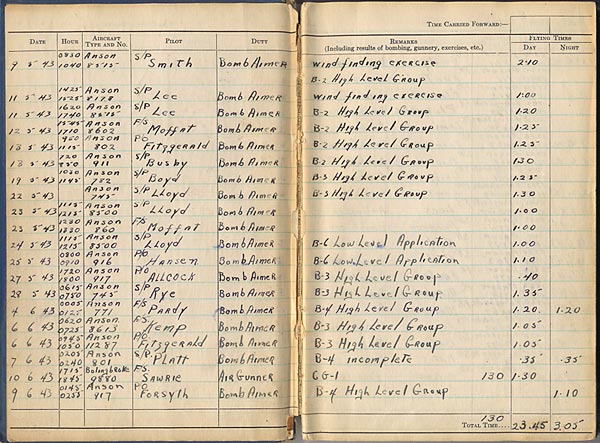 TIME CARRIED FORWARD:—
DATE HOUR AIRCRAFT TYPE AND NO. PILOT DUTY REMARKS (Including results of bombing, gunnery, exercises, etc.) FLYING TIMES DAY NIGHT
9 5 43 0830 1040 Anson 8575 S/P Smith Bomb Aimer wind finding exercise 2.10
B-2 High Level Group
11 5 43 1425 1525 Anson 8178 S/P Lee Bomb Aimer wind finding exercise 1.00
11 5 43 1620 1740 Anson 8575 S/P Lee Bomb Aimer B-2 High Level Group 1.20
12 5 43 1545 1710 Anson 8602 F/S Moffat Bomb Aimer B-2 High Level Group 1.25
18 5 43 1115 Anson 802 P/O Fitzgerald Bomb Aimer B-2 High Level Group 1.25
18 5 43 720 Anson 911 S/P Busby Bomb Aimer B-2 High Level Group 130
19 5 43 1020 1145 Anson 782 S/P Boyd Bomb Aimer B-3 High Level Group 1.25
22 5 43 Anson 745 S/P Lloyd Bomb Aimer B-3 High Level Group 1.30
23 5 43 1115 1215 Anson 8500 S/P Lloyd Bomb Aimer 1.00
23 5 43 1230 1330 Anson 860 F/S Moffat Bomb Aimer 1.00
24 5 43 1115 1215 Anson 8500 S/P Lloyd Bomb Aimer B-6 Low Level Application 1.00
25 5 43 0800 0910 Anson 916 P/O Hansen Bomb Aimer B-6 Low Level Application 1.10
27 5 43 1720 1800 Anson 917 P/O ALLCOCK Bomb Aimer B-3 High Level Group .40
28 5 43 0615 0750 Anson 745 S/P Rye Bomb Aimer B-3 High Level Group 1.35
4 6 43 0005 0125 Anson 771 F/S Pandy Bomb Aimer B-4 High Level Group 1.20 1.20
6 6 43 0620 0725 Anson 8613 F.S. Kemp Bomb Aimer B-3 High Level Group 1.05
6 6 43 0945 1050 Anson 11287 P/O Fitzgerald Bomb Aimer B-3 High Level Group 1.05
7 6 43 0205 0240 Anson 801 S/P. Platt Bomb Aimer B-4 incomplete .35 .35
10 6 43 1715 1845 Bolingbroke 9880 F.S. SAWRIE AIR GUNNER CG-1 130 1.30
9 6 43 0145 0255 Anson 917 P/O Forsyth Bomb Aimer B-4 High Level Group 1.10
130
TOTAL TIME.... 23.45 3.05